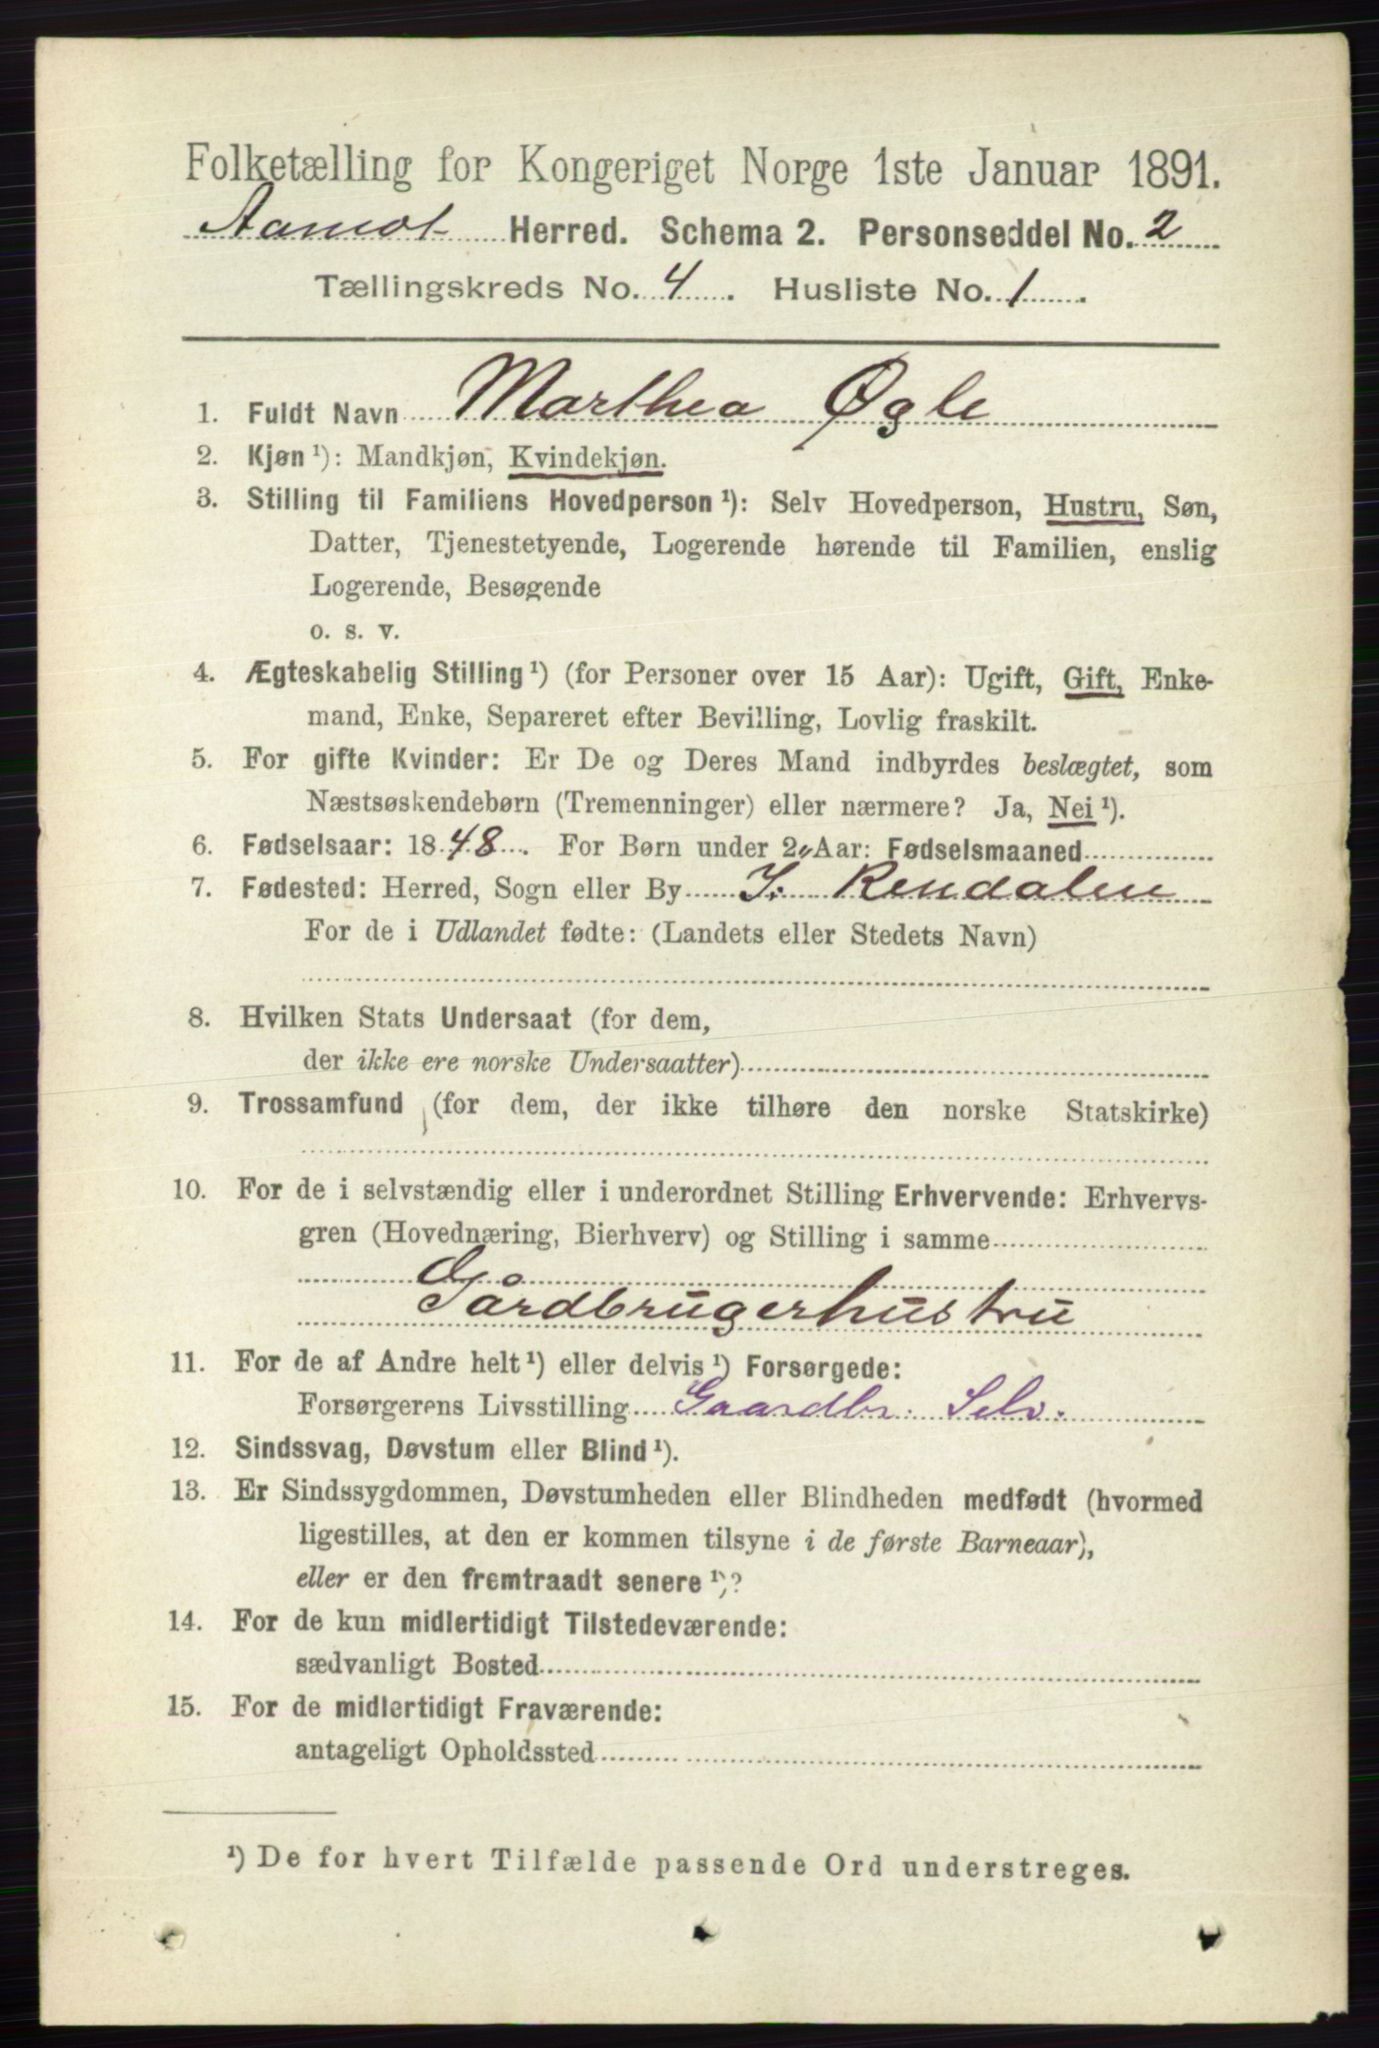 Folketælling for Kongeriget Norge 1ste Januar 1891.
Aamot Herred. Schema 2. Personseddel No. 2
Tællingskreds No. 4. Husliste No. 1.
1. Fuldt Navn Marthea Øgle
2. Kjøn ¹): Mandkjøn, Kvindekjøn.
3. Stilling til Familiens Hovedperson ¹): Selv Hovedperson, Hustru, Søn,
Datter, Tjenestetyende, Logerende hørende til Familien, enslig
Logerende, Besøgende
o. s. v.
4. Ægteskabelig Stilling ¹) (for Personer over 15 Aar): Ugift, Gift, Enke-
mand, Enke, Separeret efter Bevilling, Lovlig fraskilt.
5. For gifte Kvinder: Er De og Deres Mand indbyrdes beslægtet, som
Næstsøskendebørn (Tremenninger) eller nærmere? Ja, Nei ¹).
6. Fødselsaar: 1848. For Børn under 2 Aar: Fødselsmaaned
7. Fødested: Herred, Sogn eller By I. Rendalen
For de i Udlandet fødte: (Landets eller Stedets Navn)
8. Hvilken Stats Undersaat (for dem,
der ikke ere norske Undersaatter)
9. Trossamfund (for dem, der ikke tilhøre den norske Statskirke)
10. For de i selvstændig eller i underordnet Stilling Erhvervende: Erhvervs-
gren (Hovednæring, Bierhverv) og Stilling i samme
Gårdbrugerhustru
11. For de af Andre helt ¹) eller delvis ¹) Forsørgede:
Forsørgerens Livsstilling Gaardbr. Selv.
12. Sindssvag, Døvstum eller Blind ¹).
13. Er Sindssygdommen, Døvstumheden eller Blindheden medfødt (hvormed
ligestilles, at den er kommen tilsyne i de første Barneaar),
eller er den fremtraadt senere ¹)?
14. For de kun midlertidigt Tilstedeværende:
sædvanligt Bosted
15. For de midlertidigt Fraværende:
antageligt Opholdssted
¹) De for hvert Tilfælde passende Ord understreges.